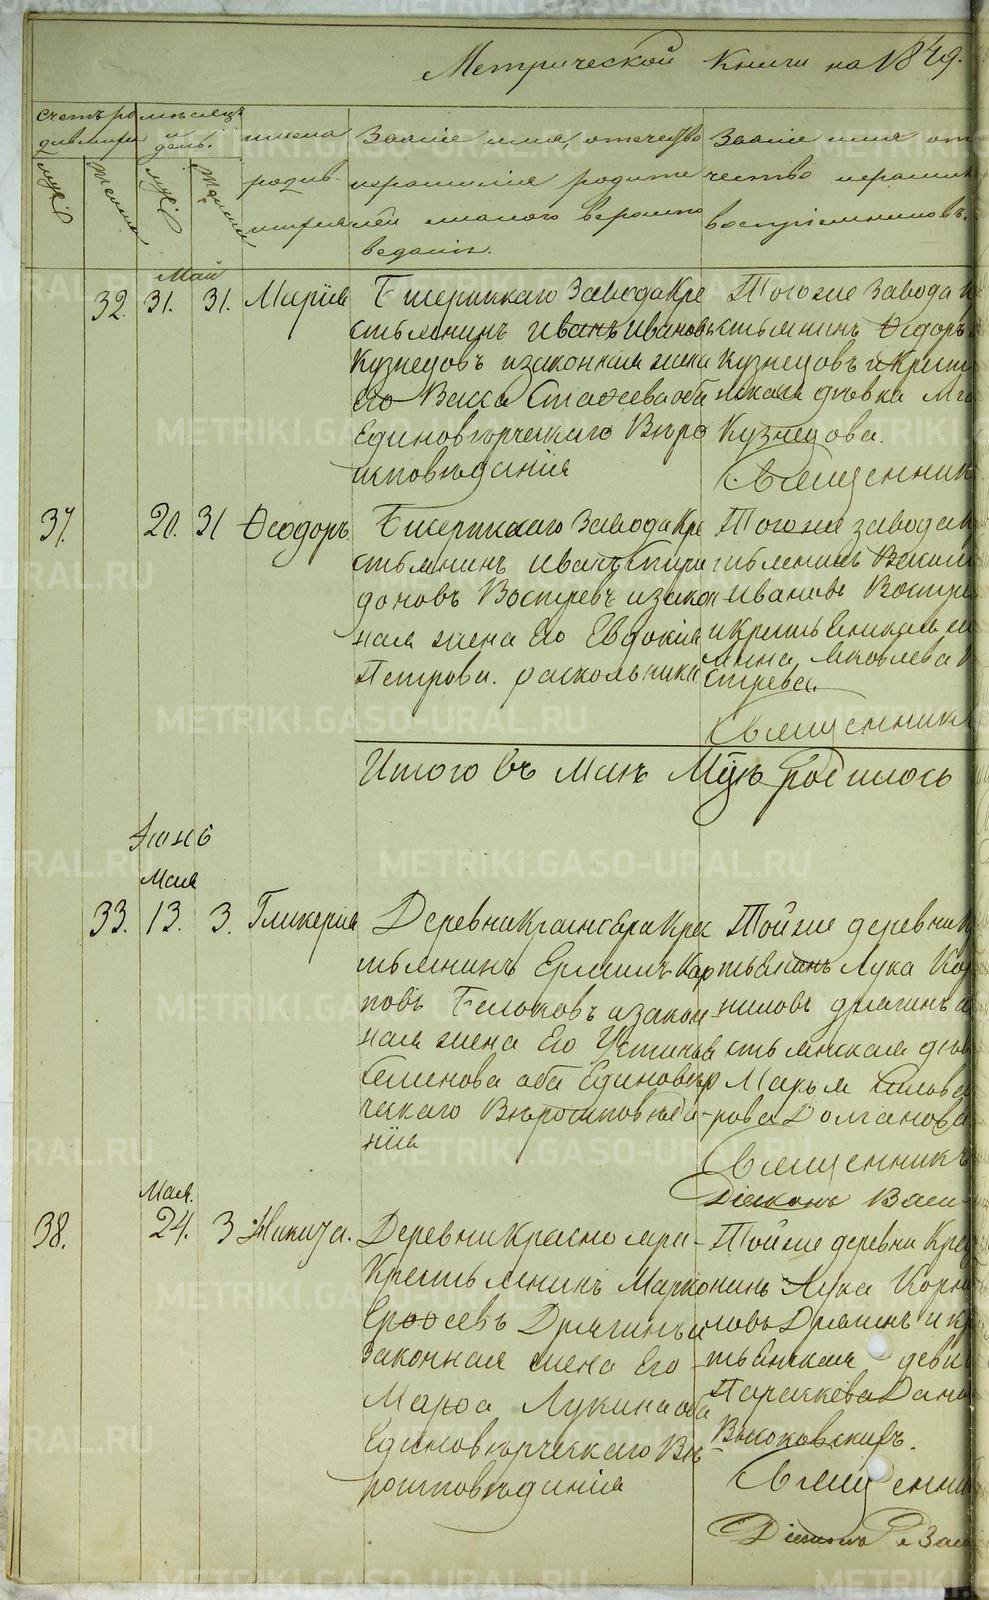 Метрической Книги на 1849.
счетъ ро мѣсяцъ
дившихся и день.
имена
родив
шихся
Званіе имя, отечество
и фамилія родите
лей и какого вѣроиспо
веданія.
Званіе имя от
чество и фамилія
воспріемниковъ.
муж женска муж женска
Май
32. 31. 31. Марія
Бисертскаго Завода Кре
стьянинъ Иванъ Ивановъ
Кузнецовъ и законная жена
Его Васса Стахеева оба
Единовѣрческаго Вѣро
исповѣданія
Того же Завода К
стьянинъ Ѳедоръ
Кузнецовъ и Крест
янская дѣвка
Кузнецова.
Священник
37. 20. 31 Ѳеодоръ
Бисертскаго Завода Кре
стьянинъ Иванъ Спири
доновъ Востревъ и закон
ная жена Его Евдокія
Петрова. раскольники
Того же завода К
стьянинъ
Ивановъ Востре
и Крестьянская
Яковлева
стрева
Священник
Итого въ Маѣ Мцѣ родилось
Іюнь
Мая
33. 13. 3. Гликерія
Деревни Краснояра Крес
тьянинъ Ермилъ Кар
повъ Белоковъ и закон
ная жена Его Устинья
Семенова оба Единовѣр
ческаго Вѣроисповѣда
нія
Той же деревни К
тьянинъ Лука Кор
ниловъ Дрягинъ и
стьянская дѣв
Марья Сильве
рова Долганова
Священникъ
Діаконъ Васи
Мая.
38. 24. 3 Никита.
Деревни Краснояра
Крестьянинъ Марко
Ерофеевъ Дрягинъ и
законная жена Его
Марѳа Лукина оба
Единовѣрческаго Вѣ
роисповѣданія
Той же деревни Крес
нинъ Лука Корни
ловъ Дрягинъ и кр
тьянская девк
Параскева Дани
Высоковскихъ.
Священни
Діаконъ